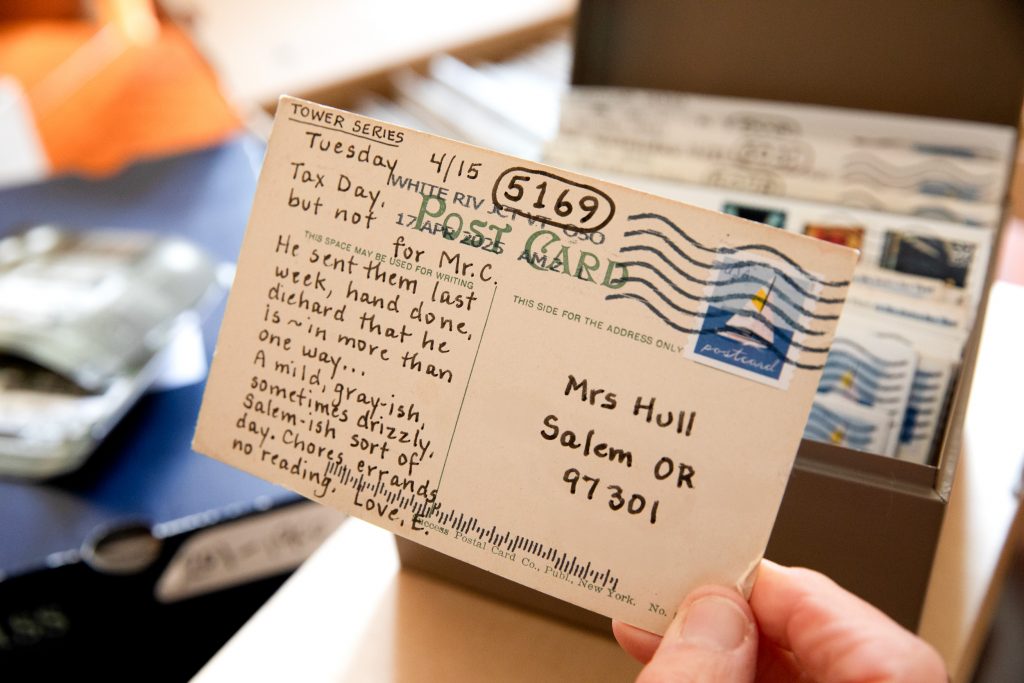 TOWER SERIES
Tuesday 4/15
5169
WHITE RIV JCT VT 050
17 APR 2025 AM 2 L
POST CARD
Tax Day,
but not for Mr. C.
THIS SPACE MAY BE USED FOR WRITING
He sent them last
week, hand done,
diehard that he
is ~ in more than
one way...
A mild, gray-ish,
sometimes drizzly,
Salem-ish sort of
day. Chores, errands,
no reading.
Love, E.
THIS SIDE FOR THE ADDRESS ONLY
postcard
Mrs Hull
Salem OR
97301
Access Postal Card Co., Publ., New York. No.